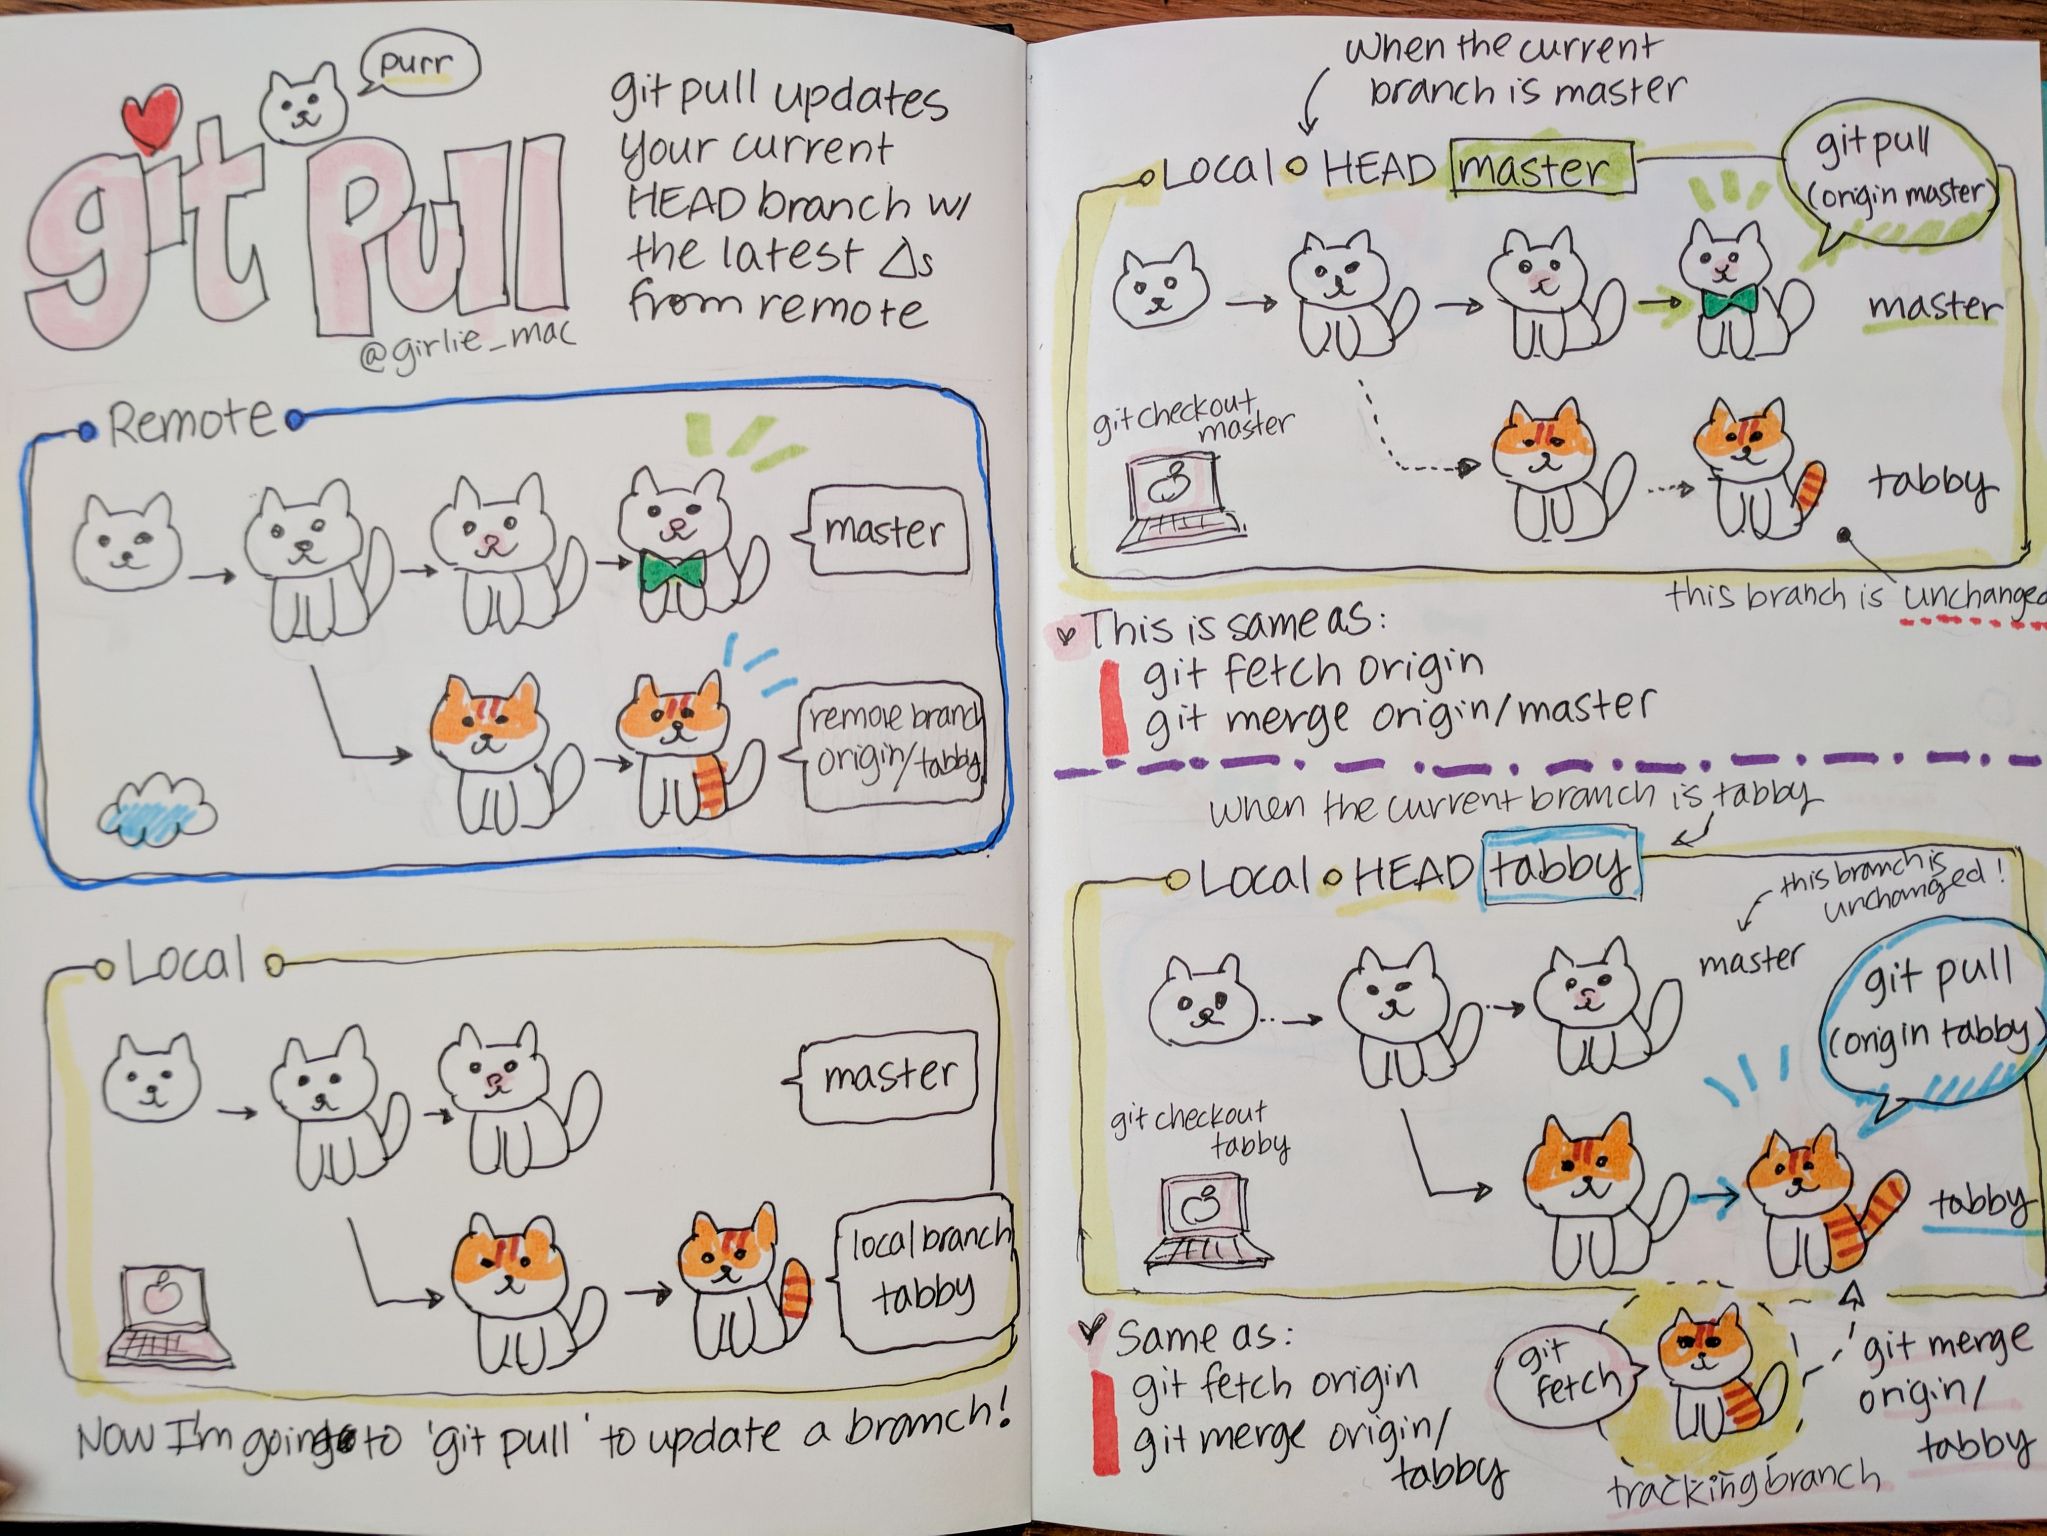 git pull
purr
@girlie_mac
git pull updates
your current
HEAD branch w/
the latest Δs
from remote
Remote
master
remote branch
origin/tabby
Local
master
local branch
tabby
Now I'm going to 'git pull' to update a branch!
When the current
branch is master
Local HEAD master
git pull
(origin master)
master
git checkout
master
tabby
this branch is unchanged
This is same as:
git fetch origin
git merge origin/master
When the current branch is tabby
Local HEAD tabby
this branch is
unchanged!
master
git pull
(origin tabby)
git checkout
tabby
tabby
Same as:
git fetch origin
git merge origin/
tabby
git
fetch
git merge
origin/
tabby
tracking branch